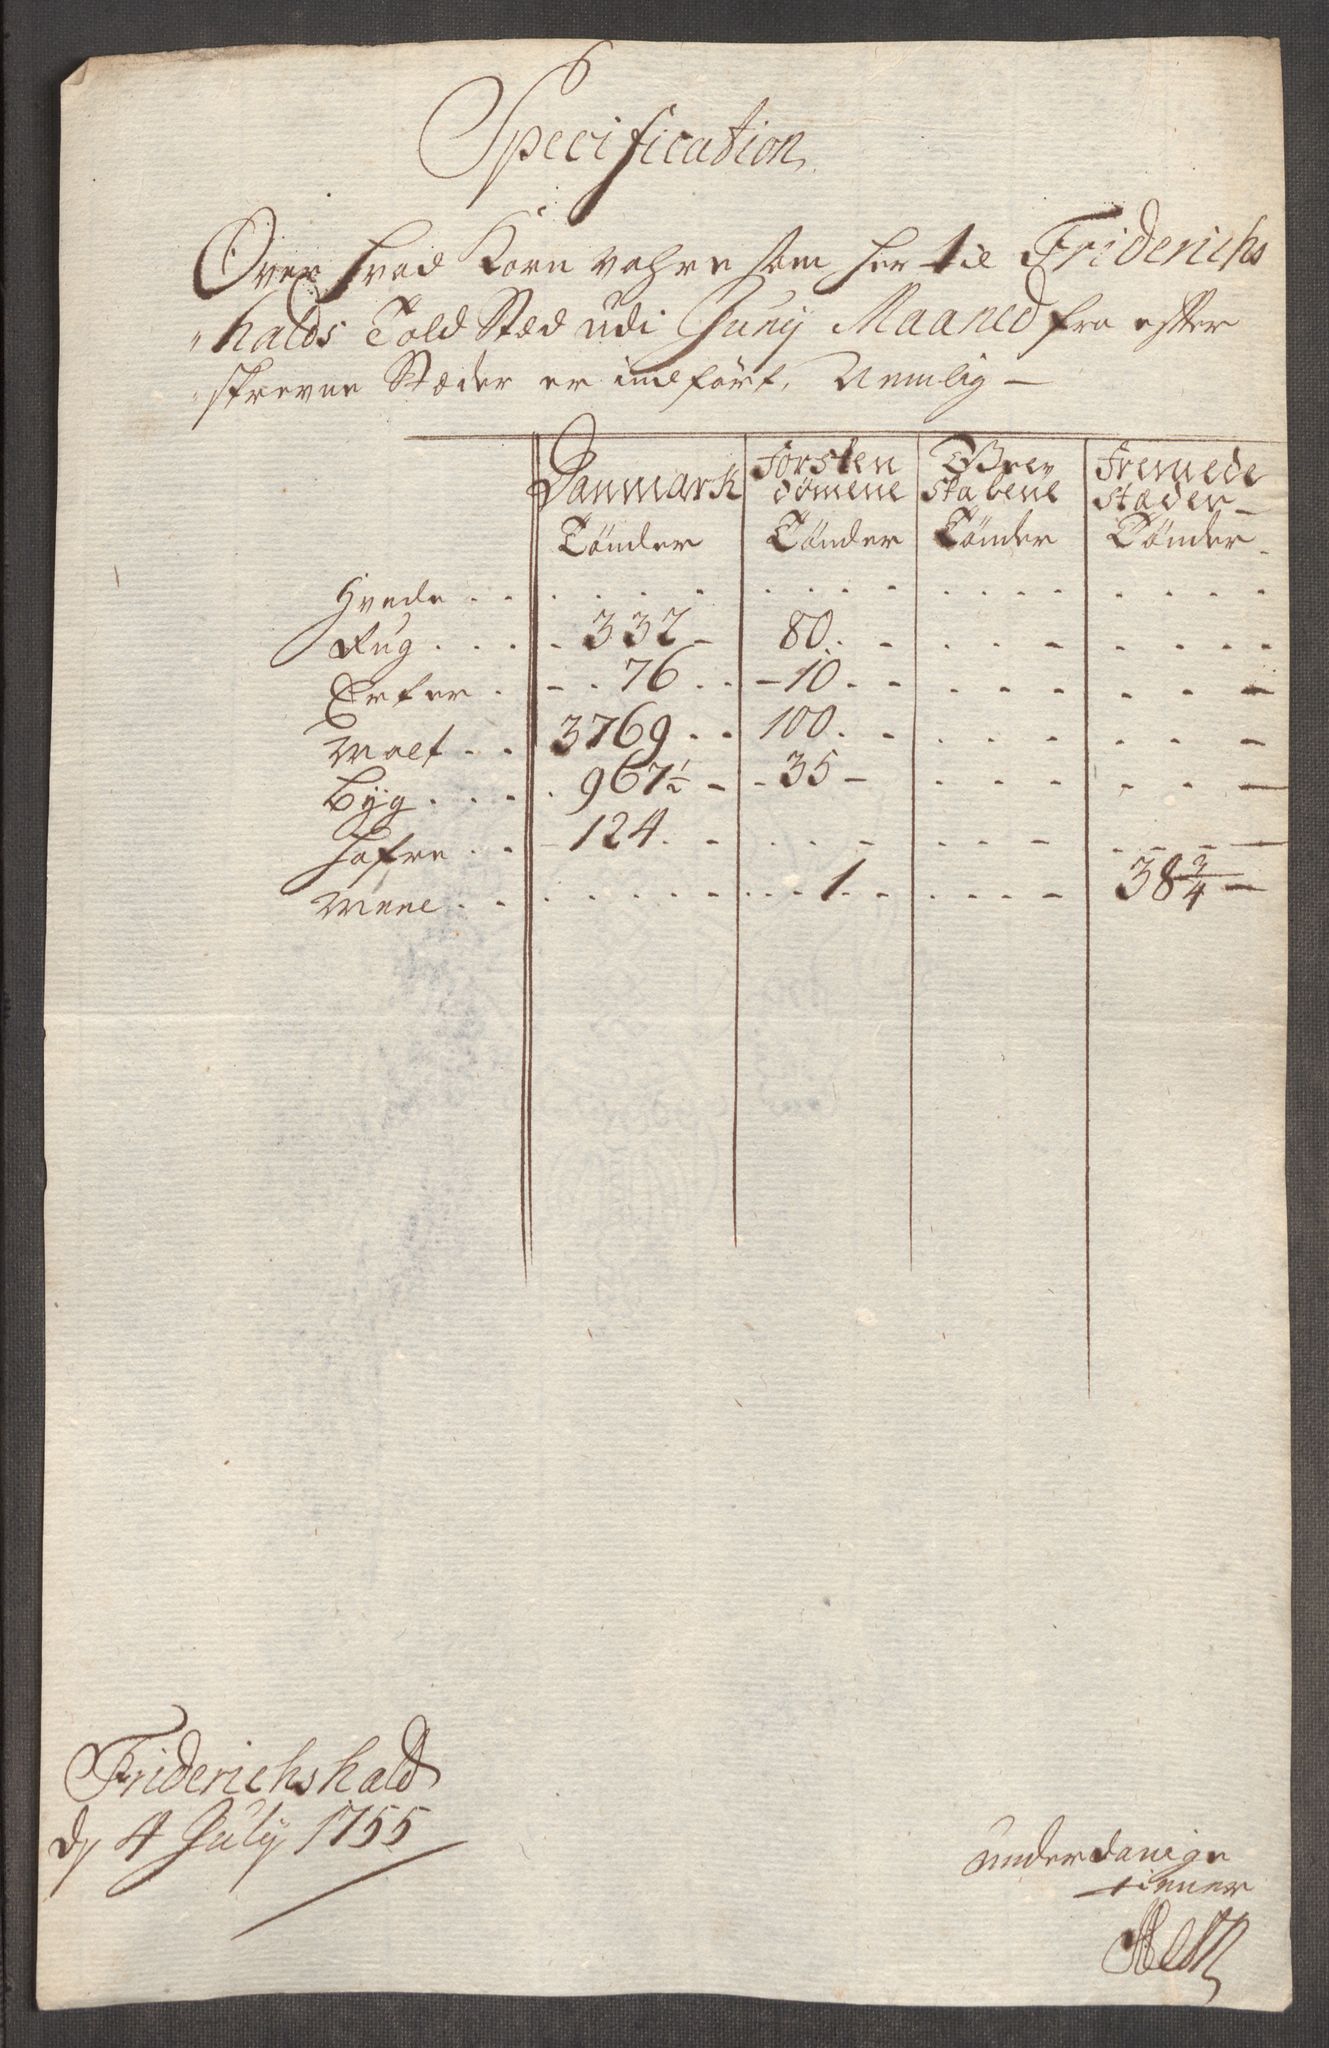 Specification
Over hvad Korn vahre som her til Friderichs
"halds Told Stæd udi Juny Maaned fra efter
"skrevne Stæder er indført, Nemlig —
Danmark Forsten Grev Fremede
dømene skabene stæder —
Tønder Tønder Tønder Tønder
Hvede . . . . . . . . . .
Rug . . . . 332 — 80 . —
Erter . — . 76 . . — 10 . —
Malt . . 3769 . . 100 . .
Byg . . . . 967 1/2 — . 35 —
Hafre . . — 124 . —
Meel . . . . . . . . . . 1 . . . . . . 38 3/4 —
Friderichshald
d. 4 July 1755
underdanige
tiener